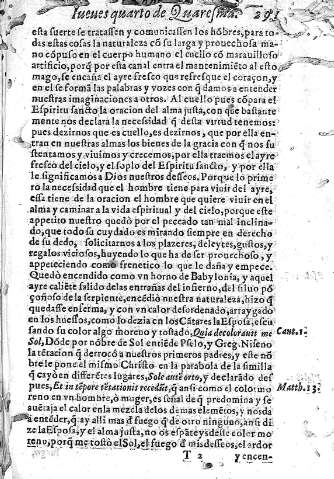 Iueues quarto de Quaresma. 291
esta suerte se tratassen y comunicassen los hõbres, para to
das estas cosas la naturaleza cõ su larga y prouechosa ma
no cõpuso en el cuerpo humano el cuello cõ marauilloso
artificio, porq̃ por esta canal entra el mantenimiẽto al esto
mago, se encaña el ayre fresco que refresque el coraçon, y
en el se forma las palabras y vozes con q̃ damos a entender
nuestras imaginaciones a otros. Al cuello pues cõpara el
Espiritu sancto la oracion del alma justa, con que bastante
mente nos declara la necessidad q̃ desta virtud tenemos:
pues dezirnos que es cuello, es dezirnos, que por ella en-
tran en nuestras almas los bienes de la gracia con q̃ nos su
stentamos y viuimos y crecemos, por ella traemos el ayre
fresco del cielo, y el soplo del Espiritu sancto, y por ella
le significamos a Dios nuestros desseos. Porque lo prime
ro la necessidad que el hombre tiene para viuir del ayre,
essa tiene de la oracion el hombre que quiere viuir en el
alma y caminar a la vida espiritual y del cielo, porque este
appetito nuestro quedò por el peccado tan mal inclina-
do, que todo su cuydado es mirando siempre en derecho
de su dedo, solicitarnos a los plazeres, deleytes, gustos, y
regalos viciosos, huyendo lo que ha de ser prouechoso, y
appeteciendo como frenetico lo que le daña y empece.
Quedò encendido como vn horno de Babylonia, y aquel
ayre caliẽte salido delas entrañas del infierno, del siluo põ
çoñoso de la serpiente, encẽdiò nuestra naturaleza, hizo q̃
quedasse enferma, y con vn calor desordenado, arraygado
en los huessos, como lo dezia en los Cãtares la Esposa, escu
sando su color algo moreno y tostado, Quia decolorauit me
Cant. 1.
Sol, Dõde por nõbre de Sol entiẽde Pselo, y Greg. Niseno
la tẽtacion q̃ derrocò a nuestros primeros padres, y este nõ
bre le pone el mismo Christo en la parabola de la semilla
q̃ cayò en differẽtes lugares, Sole
Matth. 13.
y declarãdo des
pues,
ansi como el color mo
reno en vn hombre, o muger, es señal de q̃ predomina y se
auentaja el calor en la mezcla delos demas elemẽtos, y nos da
a entẽder, q̃ ay alli mas d̃ fuego q̃ de otro ninguno, ansi di
ze la Esposa, y el alma justa, no os espãteys deste color mo
reno, porq̃ me tostò el Sol, el fuego d̃ mis desseos, el ardor
T 2 y encen-